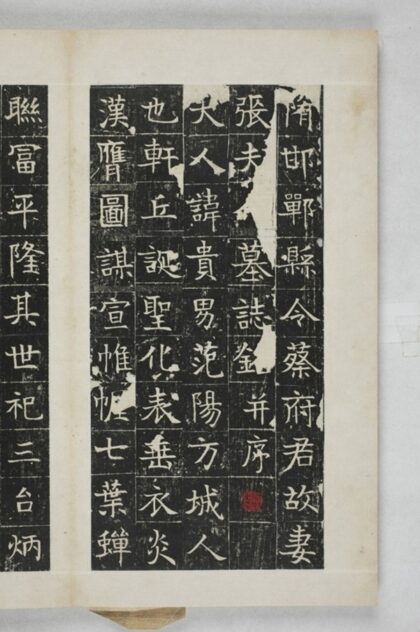 隋邯鄲縣令蔡府君故妻
張夫墓誌銘并序
夫人諱貴男范陽方城人
也軒丘誕聖化表垂衣炎
漢膺圖謀宣帷帳七葉蟬
聯富平隆其世祀三台炳